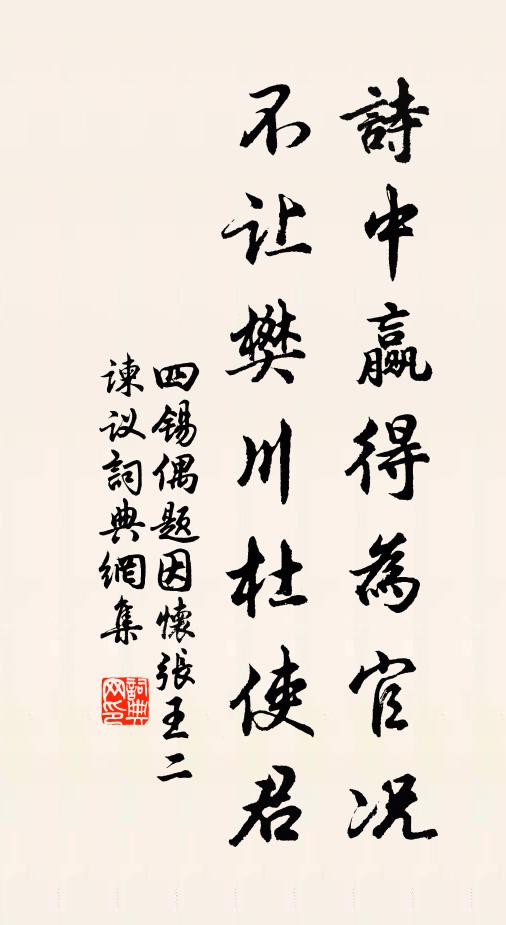 詩中贏得為官况
不让樊川杜使君
四锡偶题因懷張王二
谏议詞典網集
詞典
网印